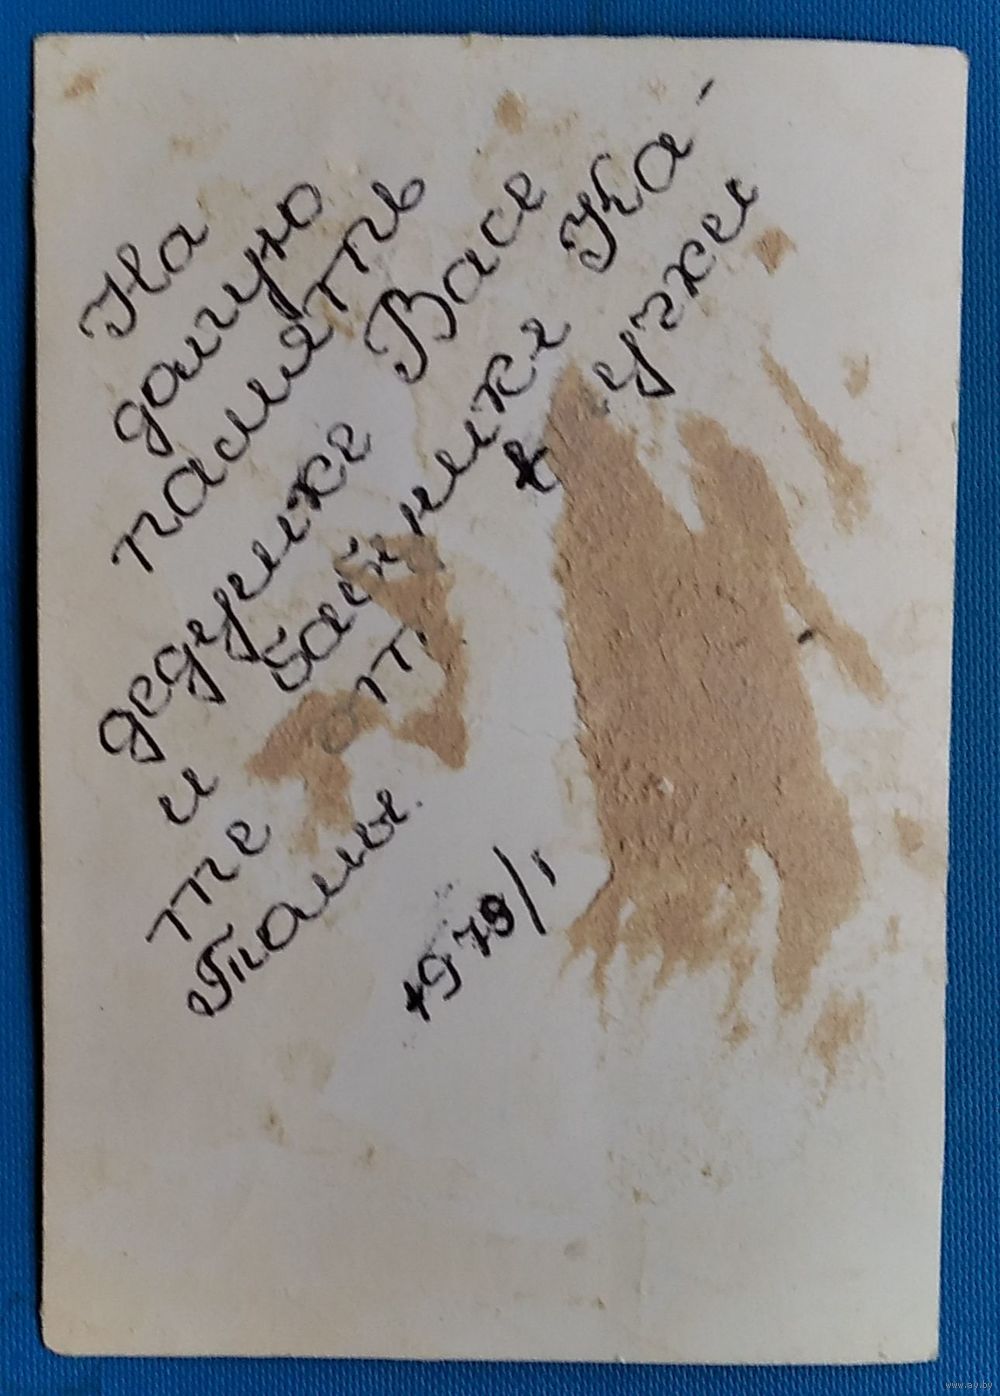 На
долгую
память
дедушке Васе
и бабушке Ка-
те от в учки
Томы.
1978/I